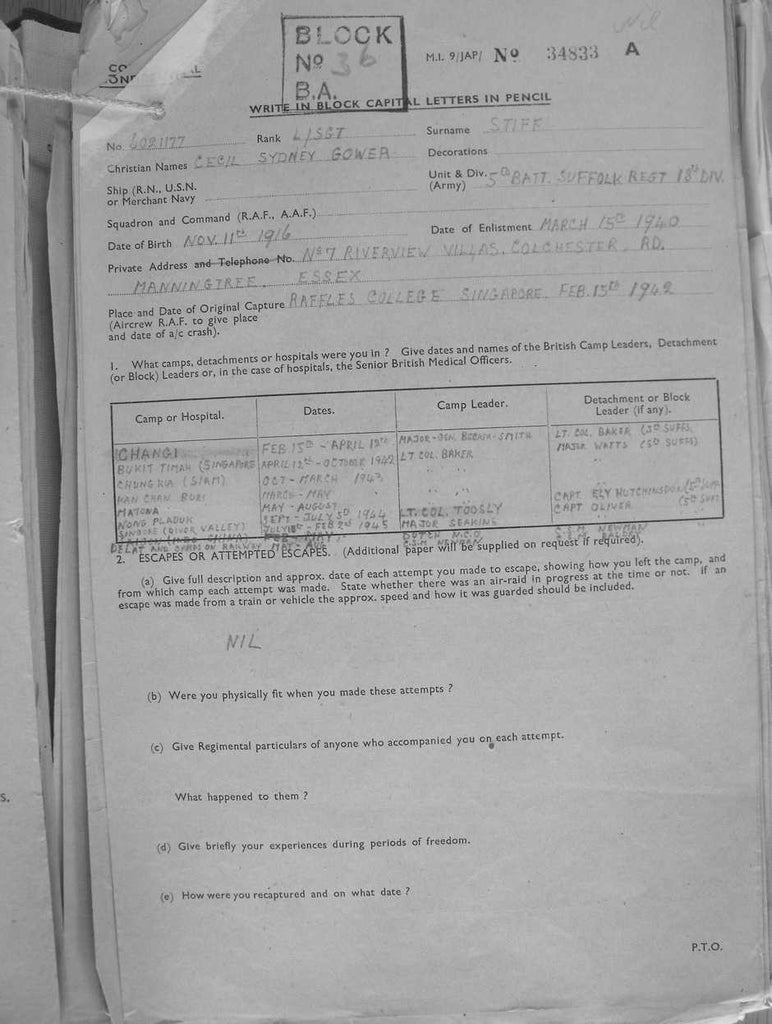 Nil
BLOCK
Nº 36
B.A.
M.I. 9/JAP/ Nº 34833 A
WRITE IN BLOCK CAPITAL LETTERS IN PENCIL
No. 6021177 Rank L/SGT Surname STIFF
Christian Names CECIL SYDNEY GOWER Decorations
Ship (R.N., U.S.N. or Merchant Navy
Unit & Div. (Army) 5th BATT. SUFFOLK REGT 18th DIV.
Squadron and Command (R.A.F., A.A.F.)
Date of Birth NOV. 11th 1916 Date of Enlistment MARCH 15th 1940
Private Address and Telephone No. Nº 7 RIVERVIEW VILLAS, COLCHESTER RD.
MANNINGTREE. ESSEX
Place and Date of Original Capture RAFFLES COLLEGE SINGAPORE. FEB. 15th 1942
(Aircrew R.A.F. to give place
and date of a/c crash).
1. What camps, detachments or hospitals were you in ? Give dates and names of the British Camp Leaders, Detachment
(or Block) Leaders or, in the case of hospitals, the Senior British Medical Officers.
Camp or Hospital. Dates. Camp Leader. Detachment or Block Leader (if any).
CHANGI FEB 15th - APRIL 12th MAJOR-GEN. SMITH LT. COL. BAKER (5th SUFFS)
BUKIT TIMAH (SINGAPORE APRIL 12th - OCTOBER 1942 LT COL. BAKER MAJOR WATTS (5th SUFFS)
CHUNGKIA (SIAM) OCT - MARCH 1943 " "
KAN CHAN BURI MARCH - MAY " " CAPT ELY HUTCHINSON
MATONA MAY - AUGUST CAPT OLIVER (5th SUFF
NONG PLADUK SEPT - JULY 5th 1944 LT. COL. TOOSLY
SINGORE (RIVER VALLEY) JULY - FEB 2nd 1945 MAJOR SEAKINS NEWMAN
FEB - MAY DUTCH N.C.O.
AND CAMPS ON RAILWAY
2. ESCAPES OR ATTEMPTED ESCAPES. (Additional paper will be supplied on request if required).
(a) Give full description and approx. date of each attempt you made to escape, showing how you left the camp, and
from which camp each attempt was made. State whether there was an air-raid in progress at the time or not. If an
escape was made from a train or vehicle the approx. speed and how it was guarded should be included.
NIL
(b) Were you physically fit when you made these attempts ?
(c) Give Regimental particulars of anyone who accompanied you on each attempt.
What happened to them ?
(d) Give briefly your experiences during periods of freedom.
(e) How were you recaptured and on what date ?
P.T.O.
S.